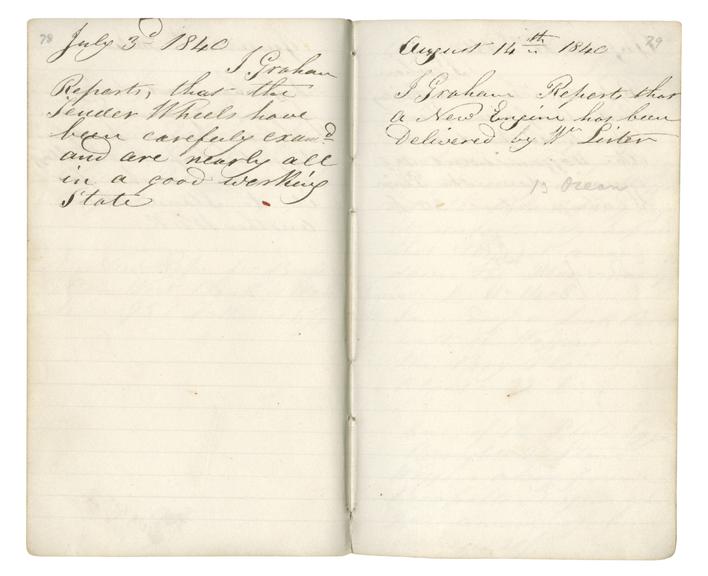 78
July 3d 1840
J Graham
Reports, that the
Tender Wheels have
been carefuly examd
and are nearly all
in a good working
State
79
August 14th 1840
J Graham Reports that
a New Engine has been
Delivered by Wm Lister
Ocean